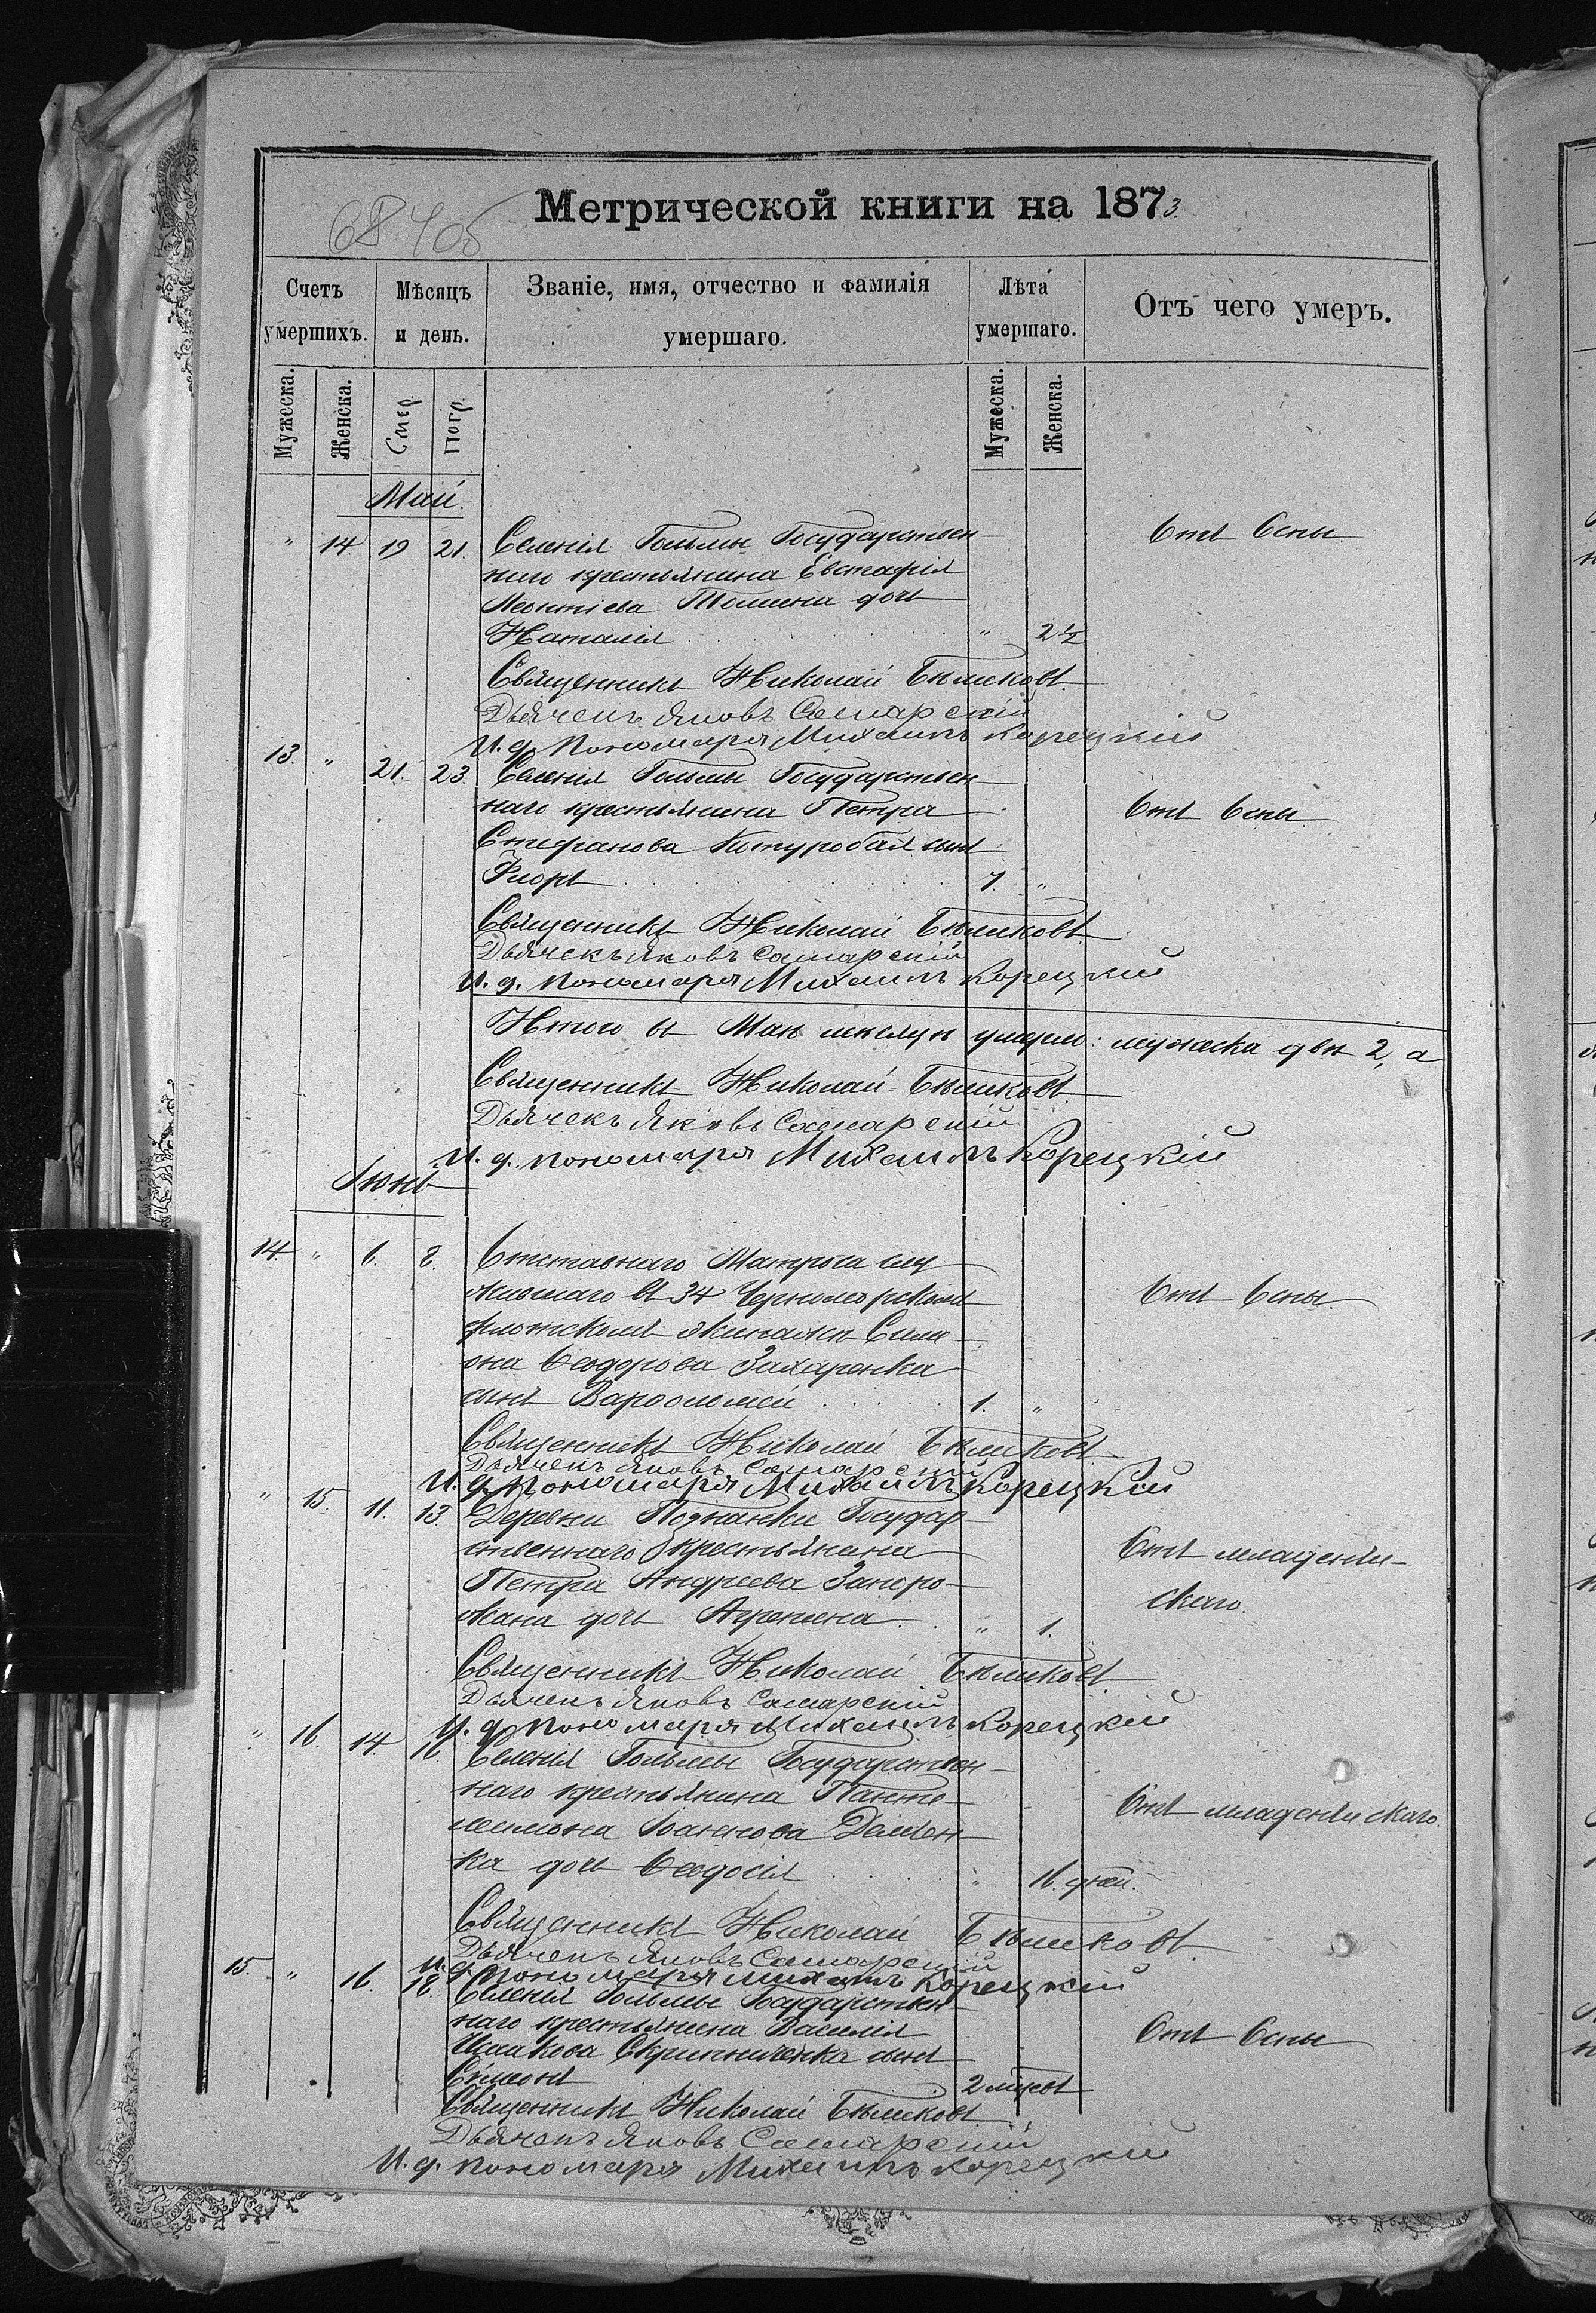 Метрической книги на 1873.
68 405
Счетъ умершихъ.
Мѣсяцъ и день.
Званіе, имя, отчество и фамилія умершаго.
Лѣта умершаго.
Отъ чего умеръ.
Мужеска. Женска. Смер. Погр. Мужеска. Женска.
Май.
" 14 19 21. Селенія Гольмы Государствен- Отъ Оспы
наго крестьянина Евстафія
Леонтіева дочь
Наталія " 2½
Священникъ Николай Бѣликовъ.
Дьячекъ Яковъ Самарскій
И. д. пономаря Михаилъ Корецкій
13. " 21. 23. Селенія Гольмы Государствен-
наго крестьянина Петра Отъ Оспы
Стефанова сынъ
Флоръ 7. "
Священникъ Николай Бѣликовъ.
Дьячекъ Яковъ Самарскій
И. д. пономаря Михаилъ Корецкій
Итого въ Маѣ мѣсяцѣ умерло: мужеска два 2, а
Священникъ Николай Бѣликовъ.
Дьячекъ Яковъ Самарскій
И. д. пономаря Михаилъ Корецкій
Іюнь
14. " 6. 8. Отставнаго Матроса слу
жившаго въ 34 Черноморскомъ Отъ Оспы.
флотскомъ экипажѣ Симе-
она Ѳеодорова Захаренка
сынъ Варѳоломей 1. "
Священникъ Николай Бѣликовъ.
Дьячекъ Яковъ Самарскій
И. д. пономаря Михаилъ Корецкій
" 15. 11. 13. Деревни Познанки Государ-
ственнаго крестьянина Отъ младенче-
Петра Андреева Запоро- скаго.
жана дочь Агрепина " 1.
Священникъ Николай Бѣликовъ.
Дьячекъ Яковъ Самарскій
И. д. пономаря Михаилъ Корецкій
" 16. 14. 16. Селенія Гольмы Государствен-
наго крестьянина Панте- Отъ младенческаго.
леимона Іоаннова Демен-
ка дочь Ѳеодосія " 16. дней.
Священникъ Николай Бѣликовъ.
Дьячекъ Яковъ Самарскій
И. д. пономаря Михаилъ Корецкій
15. " 16. 18. Селенія Гольмы Государствен-
наго крестьянина Василія Отъ Оспы
Исаакова Скрипниченка сынъ
Симеонъ 2 мѣсяц
Священникъ Николай Бѣликовъ
Дьячекъ Яковъ Самарскій
И. д. пономаря Михаилъ Корецкій